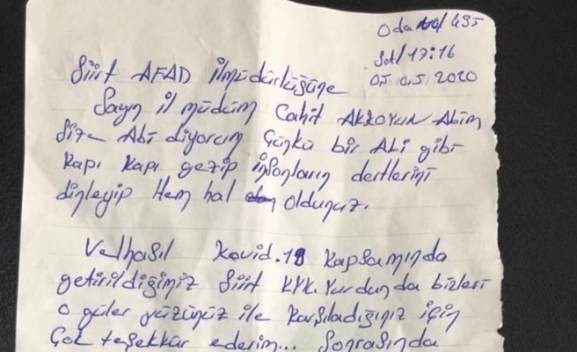 Oda no/ 435
Saat 17:16
05.05.2020
Siirt AFAD il müdürlüğüne
Sayın il müdürüm Cahit Abim
Size Abi diyorum Çünkü bir Abi gibi
Kapı Kapı gezip insanların dertlerini
dinleyip Hem hal oldunuz.
Velhasıl Kovid.19 Kapsamında
getirildiğimiz Siirt KYK. Yurdunda bizleri
o güler yüzünüz ile karşıladığınız için
Çok teşekkür ederim... Sonrasında